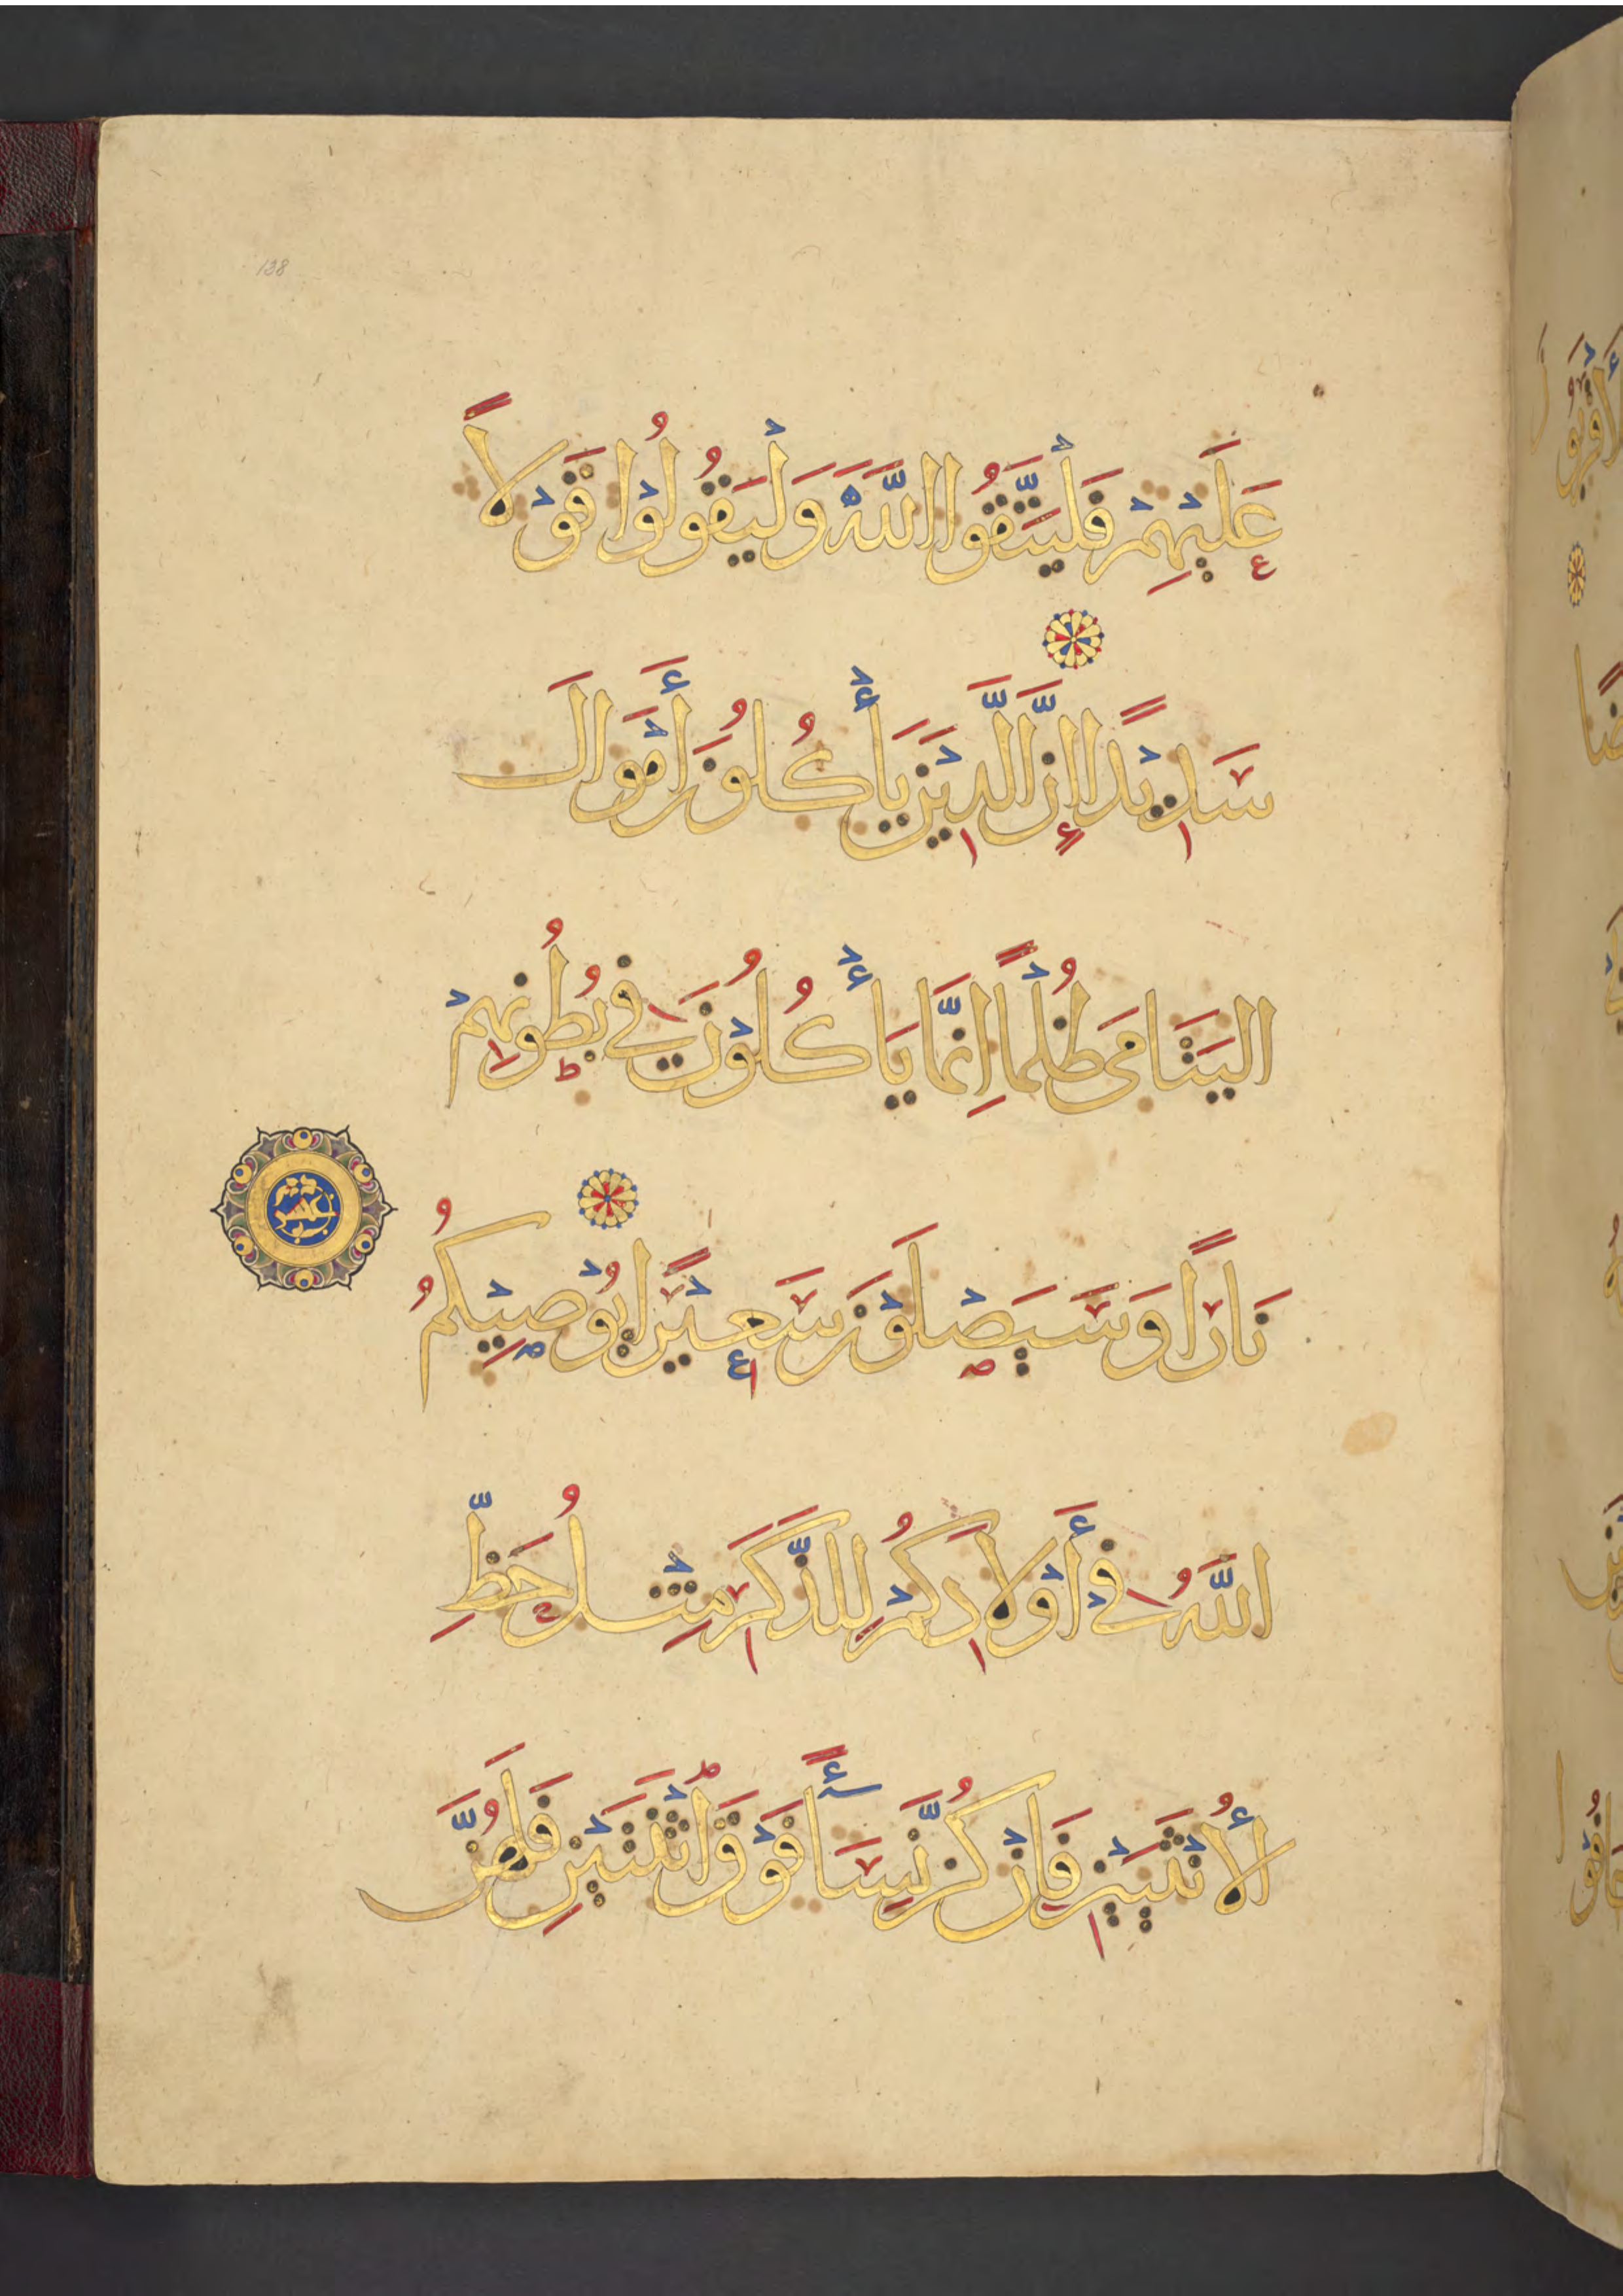 138
عَلَيْهِمْ فَلْيَتَّقُوا اللَّهَ وَلْيَقُولُوْا قَوْلاً
سَدِيْدًا إِنَّ الَّذِيْنَ يَأْكُلُونَ أَمْوَالَ
الْيَتَامَى ظُلْمًا إِنَّمَا يَأْكُلُوْنَ فِي بُطُونِهِمْ
نَارًا وَسَيَصْلَوْنَ سَعِيْرًا يُوْصِيْكُمُ
اللَّهُ فِيْ أَوْلَادِكُمْ لِلذَّكَرِ مِثْلُ حَظِّ
الْأُنْثَيَيْنِ فَإِنْ كُنَّ نِسَآءً فَوْقَ اثْنَتَيْنِ فَلَهُنَّ